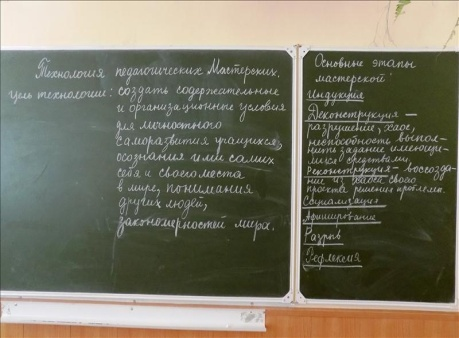 Технология педагогических Мастерских.
Цель технологии: создать содержательные
и организационные условия
для личностного
саморазвития учащихся,
осознания ими самих
себя и своего места
в мире, понимания
других людей,
закономерностей мира.
Основные этапы
мастерской
Индукция
Деконструкция –
разрушение, хаос,
неспособность выпол-
нить задание имеющи-
мися средствами,
Реконструкция – воссозда-
ние из хаоса своего
проекта решения проблемы.
Социализация
Афиширование
Разрыв
Рефлексия